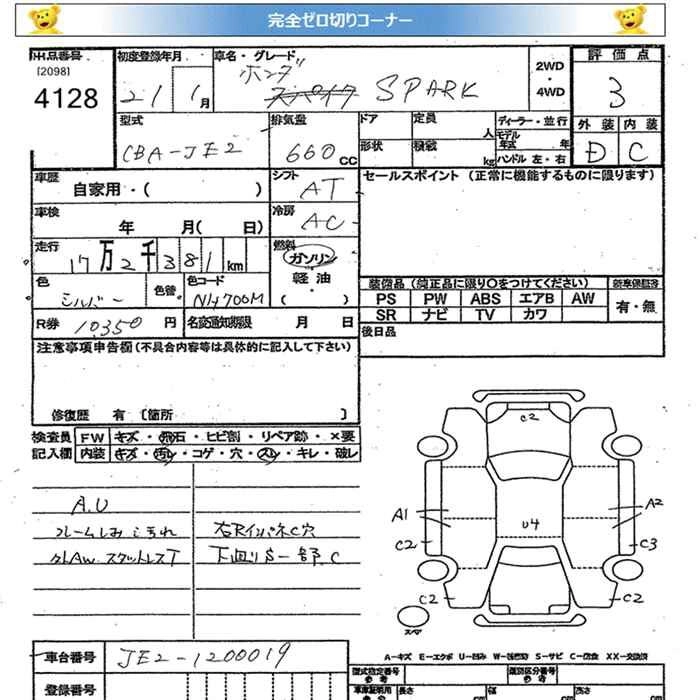 完全ゼロ切りコーナー
出品番号 初度登録年月 車名・グレード 2WD・4WD 評価点
[2098]
4128 21 1月 ホンダ スパイク SPARK 3
型式 排気量 ドア 定員 人 ディーラー・並行 外装 内装
CBA-JE2 660 CC 形状 積載 kg モデル年式 年 D C
ハンドル 左・右
車歴 自家用・( ) シフト AT セールスポイント (正常に機能するものに限ります)
車検 年 月( 日) 冷房 AC
走行 17万2千381km 燃料 ガソリン・軽油・( )
色 シルバー 色替 色コード NH700M 装備品 (純正品に限り〇をつけてください) 新車保証書
PS PW ABS エアB AW 有・無
R券 10350円 名変通知期限 月 日 SR ナビ TV カワ
注意事項申告欄(不具合内容等は具体的に記入して下さい) 後日品
修復歴 有 [箇所 ]
検査員 FW キズ・飛石・ヒビ割・リペア跡・×要
記入欄 内装 キズ・汚レ・コゲ・穴・スレ・キレ・破レ
A.U
フレームしみ こ汚れ 右RインパネC穴
スタットレスT 下回りS一部C
C2
A1 A2
U4
C2 C3
C2 C2
スペア
A-キズ E-エクボ U-凹み S-サビ C-腐食 XX-交換済
車台番号 JE2-1200019
登録番号
型式指定番号 参考 類別区分番号 参考
長さ cm 幅 cm 高さ cm